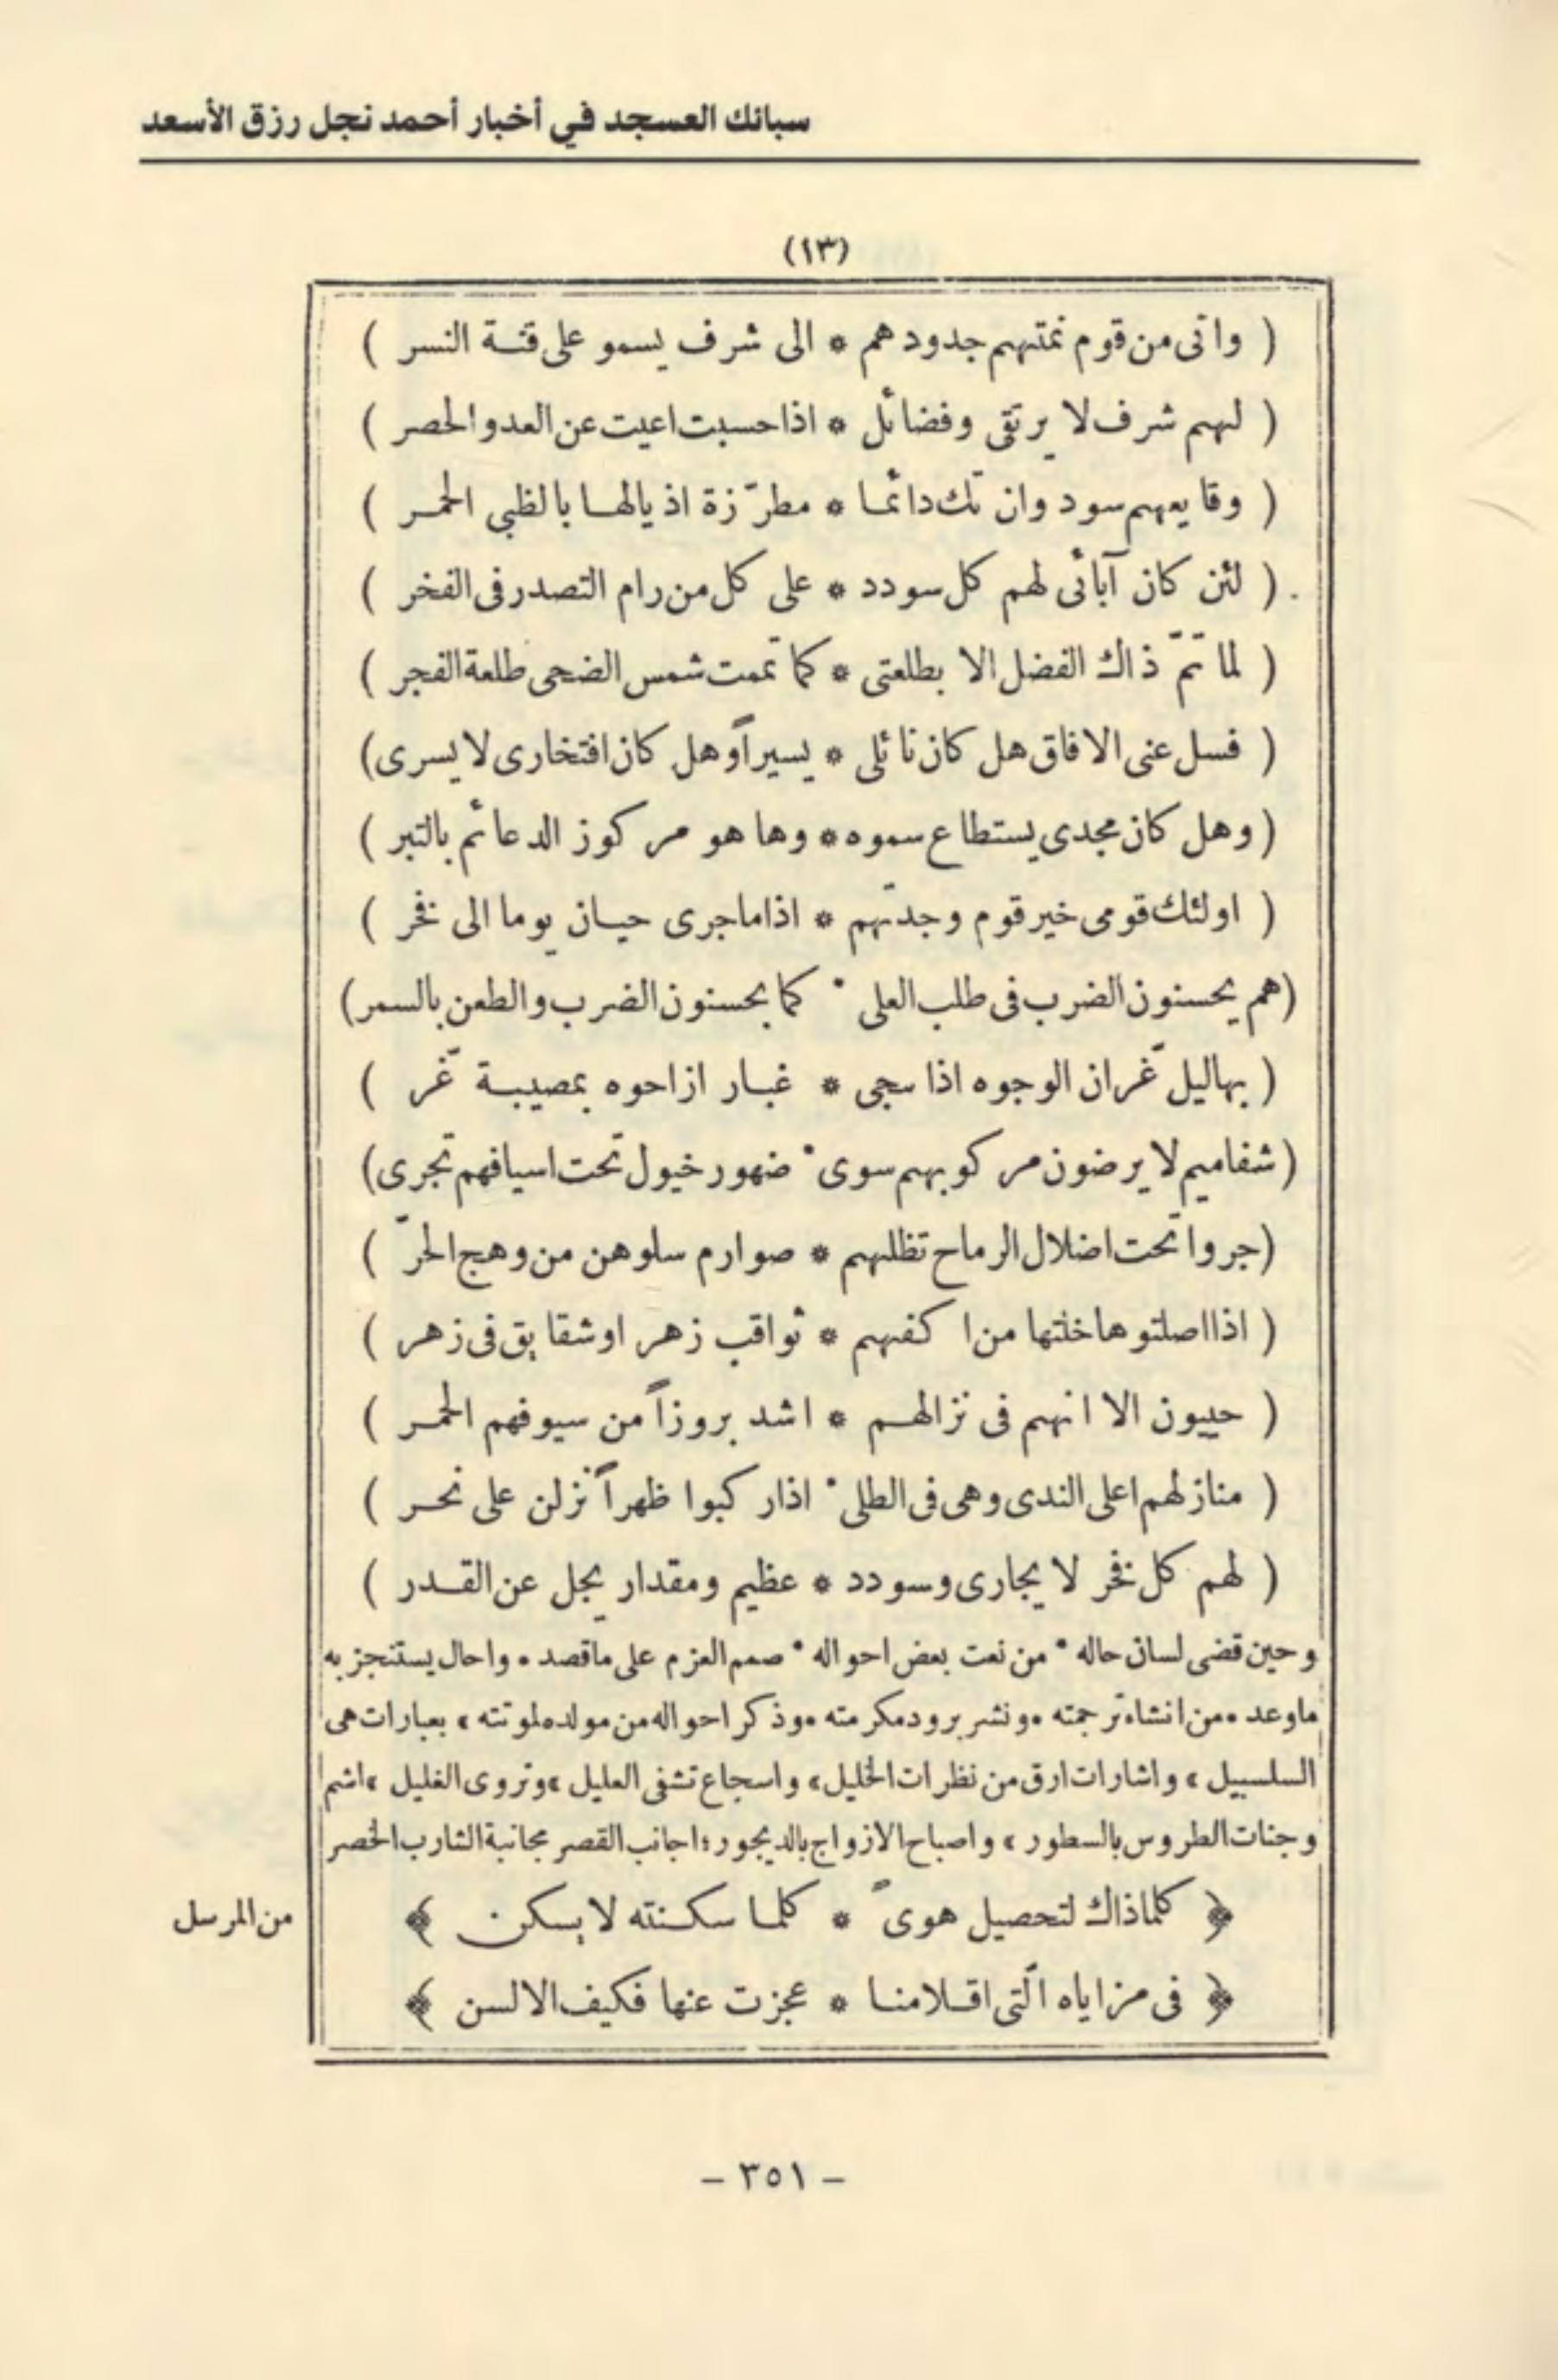 سبائك العسجد في أخبار أحمد نجل رزق الأسعد
(١٣)
( وانّى من قوم نمتهم جدودهم * الى شرف يسمو على قنة النسر )
( لهم شرف لا يرتقى وفضائل * اذا حسبت اعيت عن العد والحصر )
( وقايعهم سود وان تك دائما * مطرّزة اذيالها بالظبي الحمر )
( لئن كان آبائى لهم كل سودد * على كل من رام التصدر فى الفخر )
( لما تمّ ذاك الفضل الا بطلعتى * كما تممت شمس الضحى طلعة الفجر )
( فسل عنى الافاق هل كان نائلى * يسيراً وهل كان افتخارى لا يسرى)
( وهل كان مجدى يستطاع سموه * وها هو مركوز الدعائم بالتبر )
( اولئك قومى خير قوم وجدتهم * اذا ما جرى حيان يوما الى فخر )
(هم يحسنون الضرب فى طلب العلى * كما يحسنون الضرب والطعن بالسمر)
( بهاليل غران الوجوه اذا سجى * غبار ازاحوه بمصيبة غر )
(شفاميم لا يرضون مركوبهم سوى * ضهور خيول تحت اسيافهم تجرى)
(جروا تحت اضلال الرماح تظلهم * صوارم سلوهن من وهج الحرّ )
( اذا اصلتوها خلتها من اكفهم * ثواقب زهر او شقايق فى زهر )
( حييون الا انهم فى نزالهم * اشد بروزاً من سيوفهم الحمر )
( منازلهم اعلى الندى وهى فى الطلى * اذا ركبوا ظهراً نزلن على نحر )
( لهم كل فخر لا يجارى وسودد * عظيم ومقدار يجل عن القدر )
وحين قضى لسان حاله * من نعت بعض احواله * صمم العزم على ما قصد * واحال يستنجز به
ما وعد * من انشاء ترجمته * ونشر برود مكرمته * وذكر احواله من مولده لموتته * بعبارات هى
السلسبيل * واشارات ارق من نظرات الخليل * واسجاع تشفى العليل * وتروى الغليل * اشم
وجنات الطروس بالسطور * واصباح الازواج بالديجور * اجانب القصر مجانبة الشارب الخصر
﴿ كلما ذاك لتحصيل هوىً * كلما سكنته لا يسكن ﴾
من المرسل
﴿ فى مزاياه الّتى اقلامنا * عجزت عنها فكيف الالسن ﴾
- ٣٥١ -